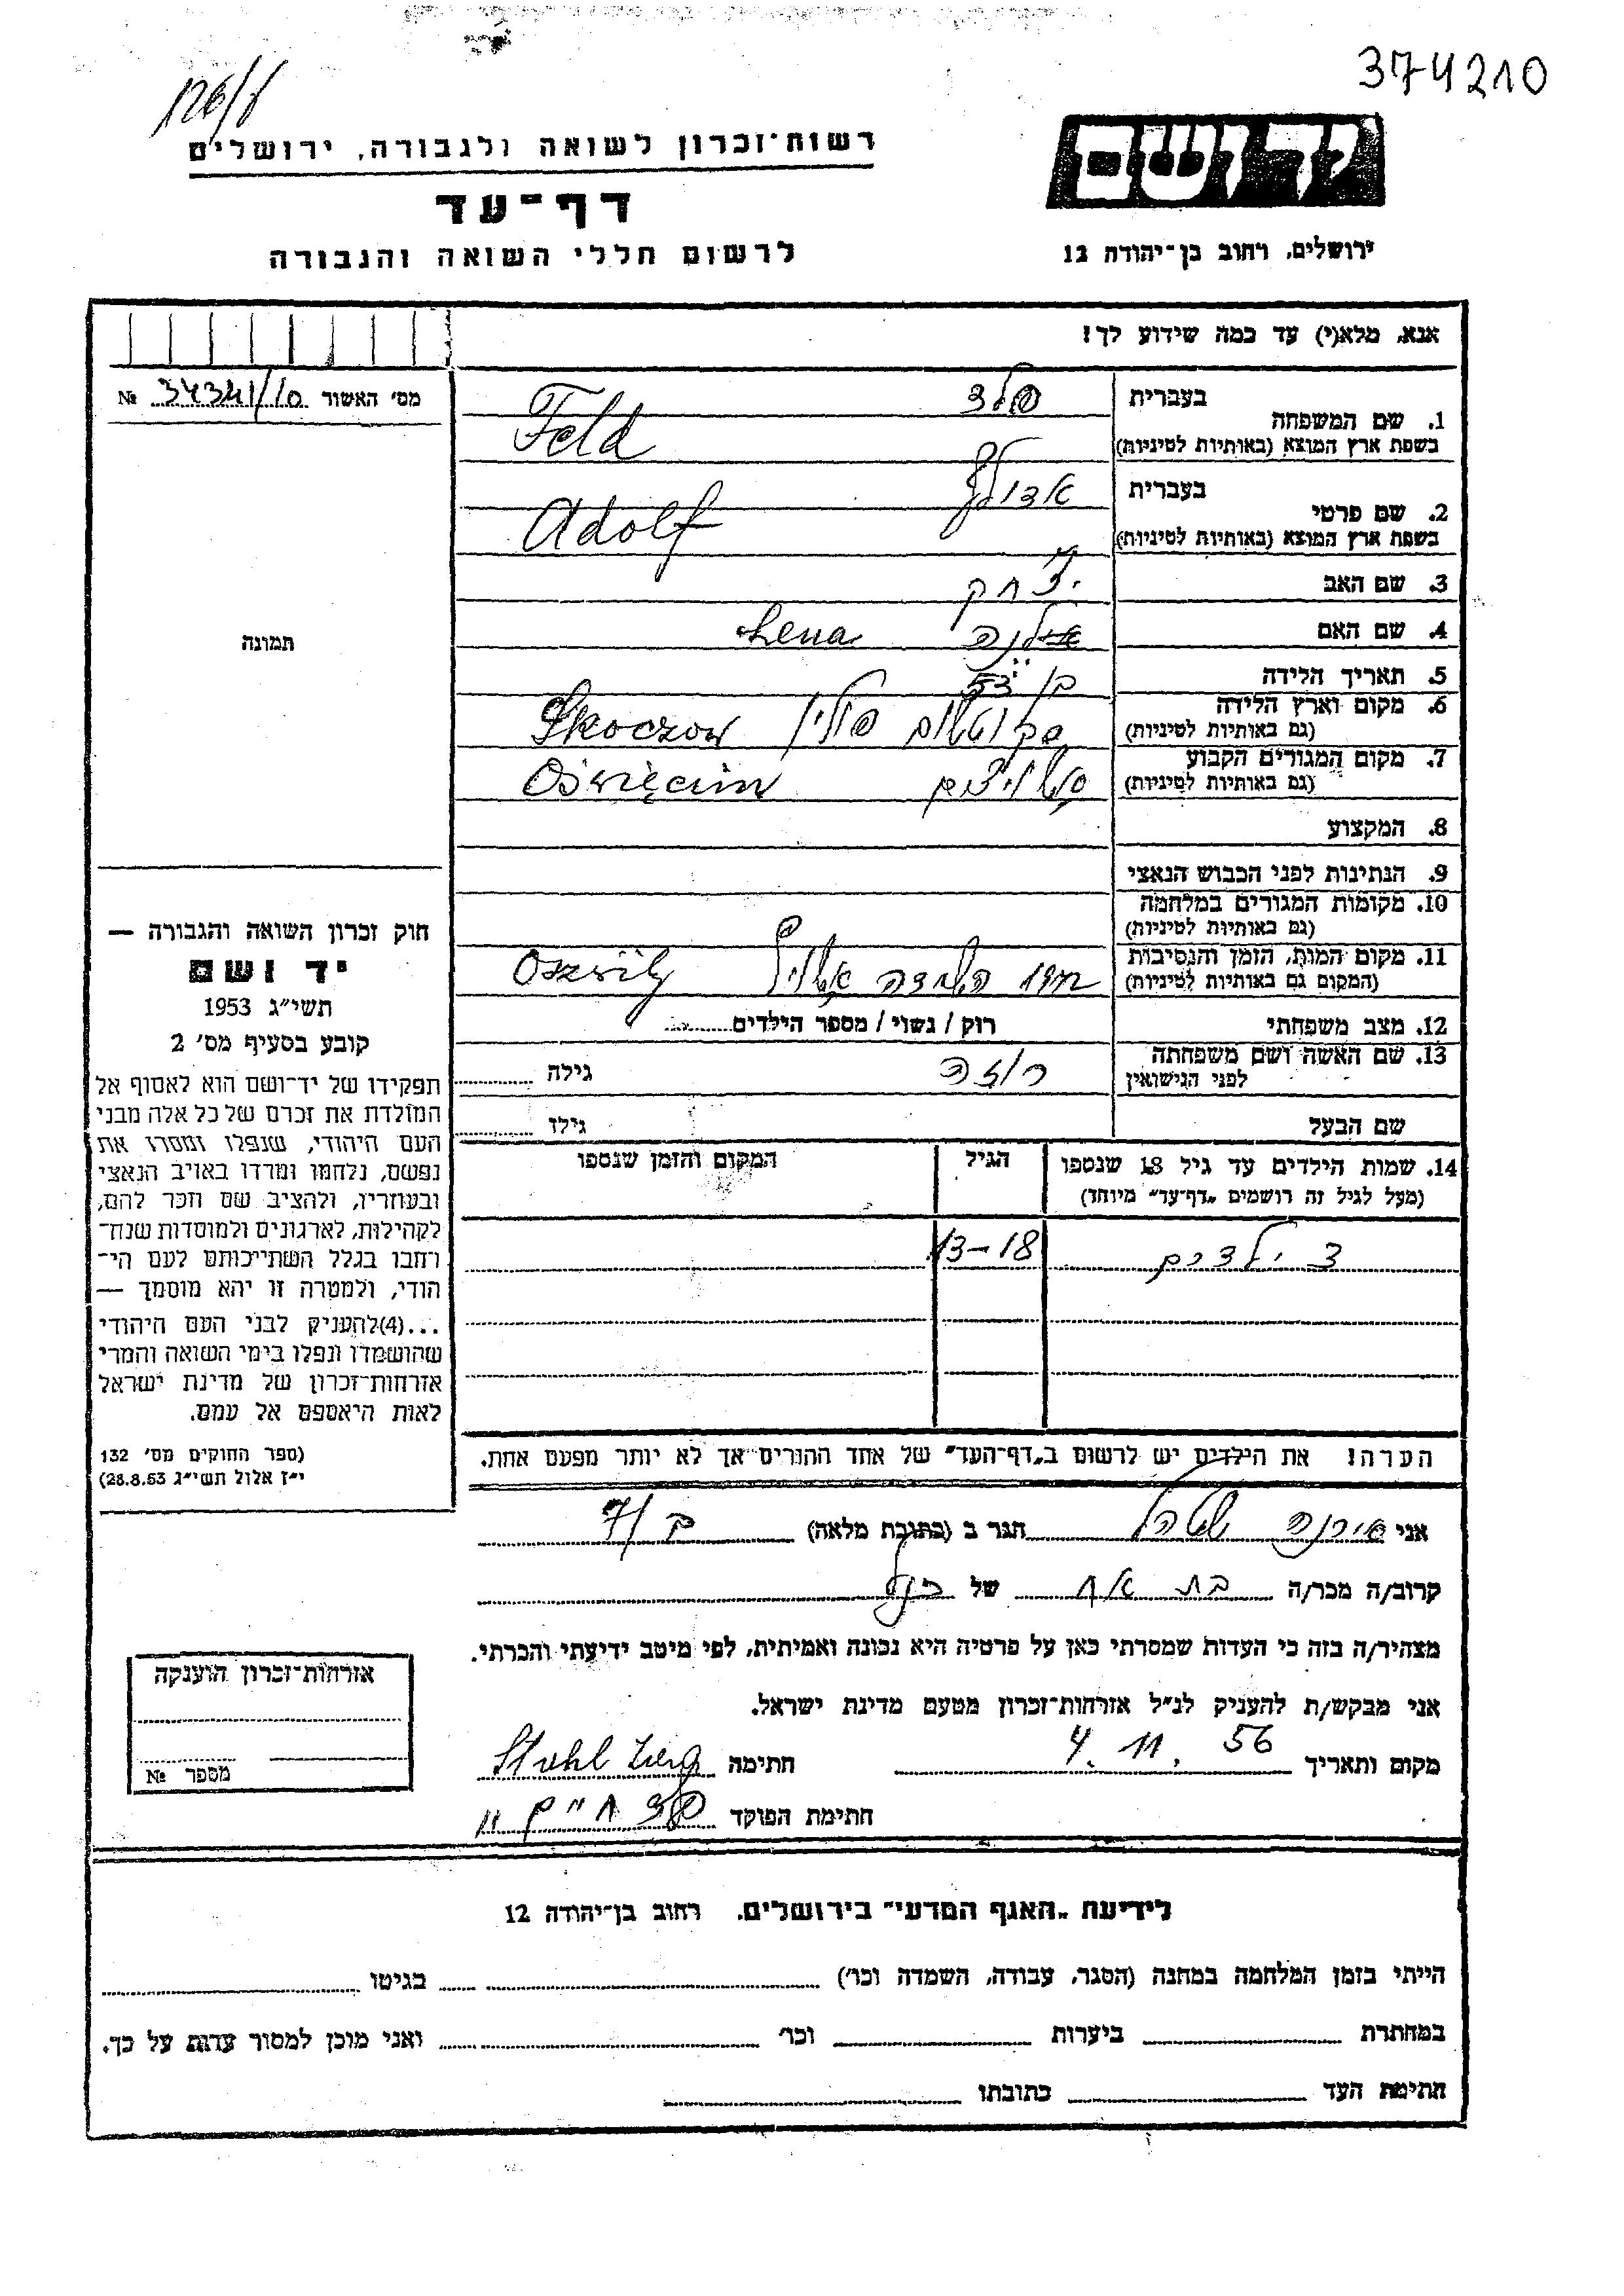 374210
126/
רשות־זכרון לשואה ולגבורה, ירושלים
דף־עד
לרשום חללי השואה והגבורה
ידושם
ירושלים, רחוב בן־יהודה 12
אנא, מלא(י) עד כמה שידוע לך!
מס' האשור 34341/10 №
תמונה
1. שם המשפחה
בעברית פלד
בשפת ארץ המוצא (באותיות לטיניות) Feld
2. שם פרטי
בעברית אדולף
בשפת ארץ המוצא (באותיות לטיניות) Adolf
3. שם האב יצחק
4. שם האם Lena
5. תאריך הלידה בן 53
6. מקום וארץ הלידה
(גם באותיות לטיניות) פולין Skoczow
7. מקום המגורים הקבוע
(גם באותיות לטיניות) Oświęcim
8. המקצוע
9. הנתינות לפני הכבוש הנאצי
10. מקומות המגורים במלחמה
(גם באותיות לטיניות)
11. מקום המות, הזמן והנסיבות
(המקום גם באותיות לטיניות) מחנה השמדה
12. מצב משפחתי רוק / נשוי / מספר הילדים
13. שם האשה ושם משפחתה
לפני הנישואין רוזה גילה
שם הבעל גילו
14. שמות הילדים עד גיל 18 שנספו
(מעל לגיל זה רושמים „דף־עד" מיוחד)
הגיל
המקום והזמן שנספו
ילדים 13-18
הערה! את הילדים יש לרשום ב„דף־העד" של אחד ההורים אך לא יותר מפעם אחת.
חוק זכרון השואה והגבורה —
יד ושם
תשי״ג 1953
קובע בסעיף מס' 2
תפקידו של יד־ושם הוא לאסוף אל
המולדת את זכרם של כל אלה מבני
העם היהודי, שנפלו ומסרו את
נפשם, נלחמו ומרדו באויב הנאצי
ובעוזריו, ולהציב שם וזכר להם,
לקהילות, לארגונים ולמוסדות שנח־
רחבו בגלל השתייכותם לעם הי־
הודי, ולמטרה זו יהא מוסמך —
...(4)להעניק לבני העם היהודי
שהושמדו ונפלו בימי השואה והמרי
אזרחות־זכרון של מדינת ישראל
לאות היאספם אל עמם.
(ספר החוקים מס' 132
י״ז אלול תשי״ג 28.8.53)
אני אירנה שטהל הגר ב (כתובת מלאה)
קרוב/ה מכר/ה בת אח של
מצהיר/ה בזה כי העדות שמסרתי כאן על פרטיה היא נכונה ואמיתית, לפי מיטב ידיעתי והכרתי.
אני מבקש/ת להעניק לנ״ל אזרחות־זכרון מטעם מדינת ישראל.
מקום ותאריך 4. 11. 56 חתימה Stahl
חתימת הפוקד
אזרחות־זכרון הוענקה
מספר №
לידיעת „האגף המדעי" בירושלים, רחוב בן־יהודה 12
הייתי בזמן המלחמה במחנה (הסגר, עבודה, השמדה וכו') בגיטו
במחתרת ביערות וכו' ואני מוכן למסור עדות על כך.
חתימת העד כתובתו